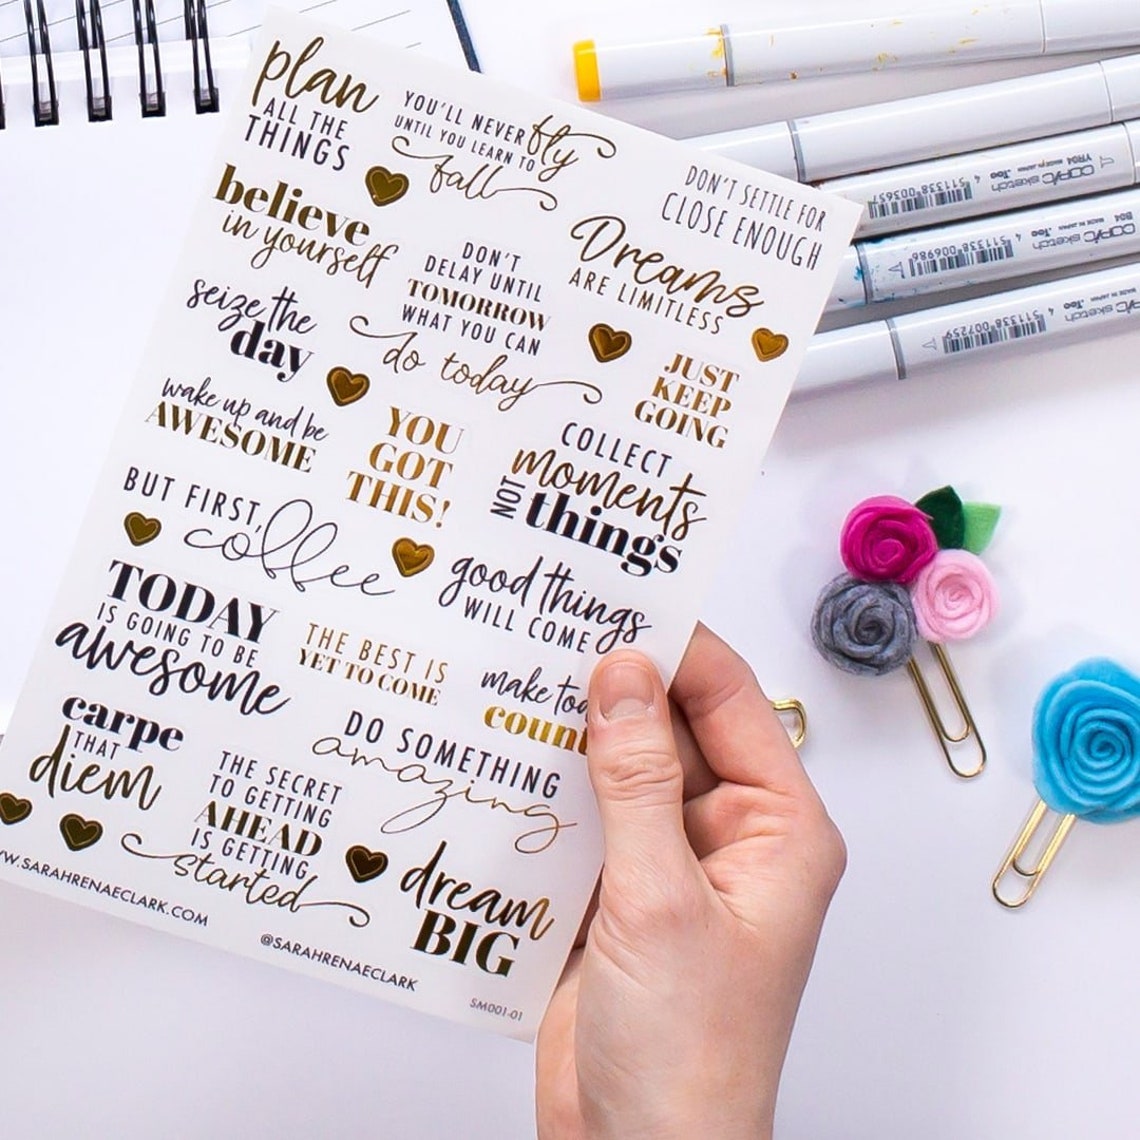 plan
ALL THE
THINGS
YOU'LL NEVER fly
UNTIL YOU LEARN TO
fall
DON'T SETTLE FOR
CLOSE ENOUGH
believe
in yourself
DON'T
DELAY UNTIL
TOMORROW
WHAT YOU CAN
do today
Dreams
ARE LIMITLESS
seize the
day
JUST
KEEP
GOING
wake up and be
AWESOME
YOU
GOT
THIS!
COLLECT
moments
NOT things
BUT FIRST,
coffee
good things
WILL COME
TODAY
IS GOING TO BE
awesome
THE BEST IS
YET TO COME
make tod
count
carpe
THAT
diem
DO SOMETHING
amazing
THE SECRET
TO GETTING
AHEAD
IS GETTING
started
dream
BIG
WW.SARAHRENAECLARK.COM
@SARAHRENAECLARK
SM001-01
COPIC sketch
YR04 MADE IN JAPAN Too
4 511338 003657
COPIC sketch
B04 MADE IN JAPAN Too
4 511338 006986
COPIC sketch
MADE IN JAPAN Too
4 511338 007259